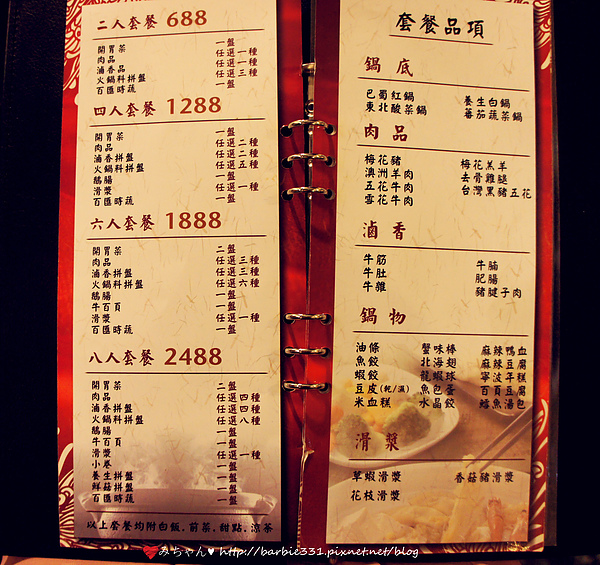 二人套餐 688
開胃菜 一盤
肉品 任選一種
滷香品 任選一種
火鍋料拼盤 任選三種
百匯時蔬 一盤
四人套餐 1288
開胃菜 一盤
肉品 任選二種
滷香拼盤 任選二種
火鍋料拼盤 任選五種
鵝腸 一盤
滑漿 任選一種
百匯時蔬 一盤
六人套餐 1888
開胃菜 二盤
肉品 任選三種
滷香拼盤 任選三種
火鍋料拼盤 任選六種
鵝腸 一盤
牛百頁 一盤
滑漿 任選一種
百匯時蔬 一盤
八人套餐 2488
開胃菜 二盤
肉品 任選四種
滷香拼盤 任選四種
火鍋料拼盤 任選八種
鵝腸 一盤
牛百頁 一盤
滑漿 任選一種
小卷 一盤
養生拼盤 一盤
鮮菇拼盤 一盤
百匯時蔬 一盤
以上套餐均附白飯.前菜.甜點.涼茶
套餐品項
鍋底
巴蜀紅鍋 養生白鍋
東北酸菜鍋 蕃茄蔬菜鍋
肉品
梅花豬 梅花羔羊
澳洲羊肉 去骨雞腿
五花牛肉 台灣黑豬五花
雪花牛肉
滷香
牛筋 牛腩
牛肚 肥腸
牛雜 豬腱子肉
鍋物
油條 蟹味棒 麻辣鴨血
魚餃 北海翅 麻辣豆腐
蝦餃 龍蝦球 寧波年糕
豆皮(乾/濕) 魚包蛋 百頁豆腐
米血糕 水晶餃 鱈魚湯包
滑漿
草蝦滑漿 香菇豬滑漿
花枝滑漿
みちゃん♥ http://barbie331.pixnet.net/blog